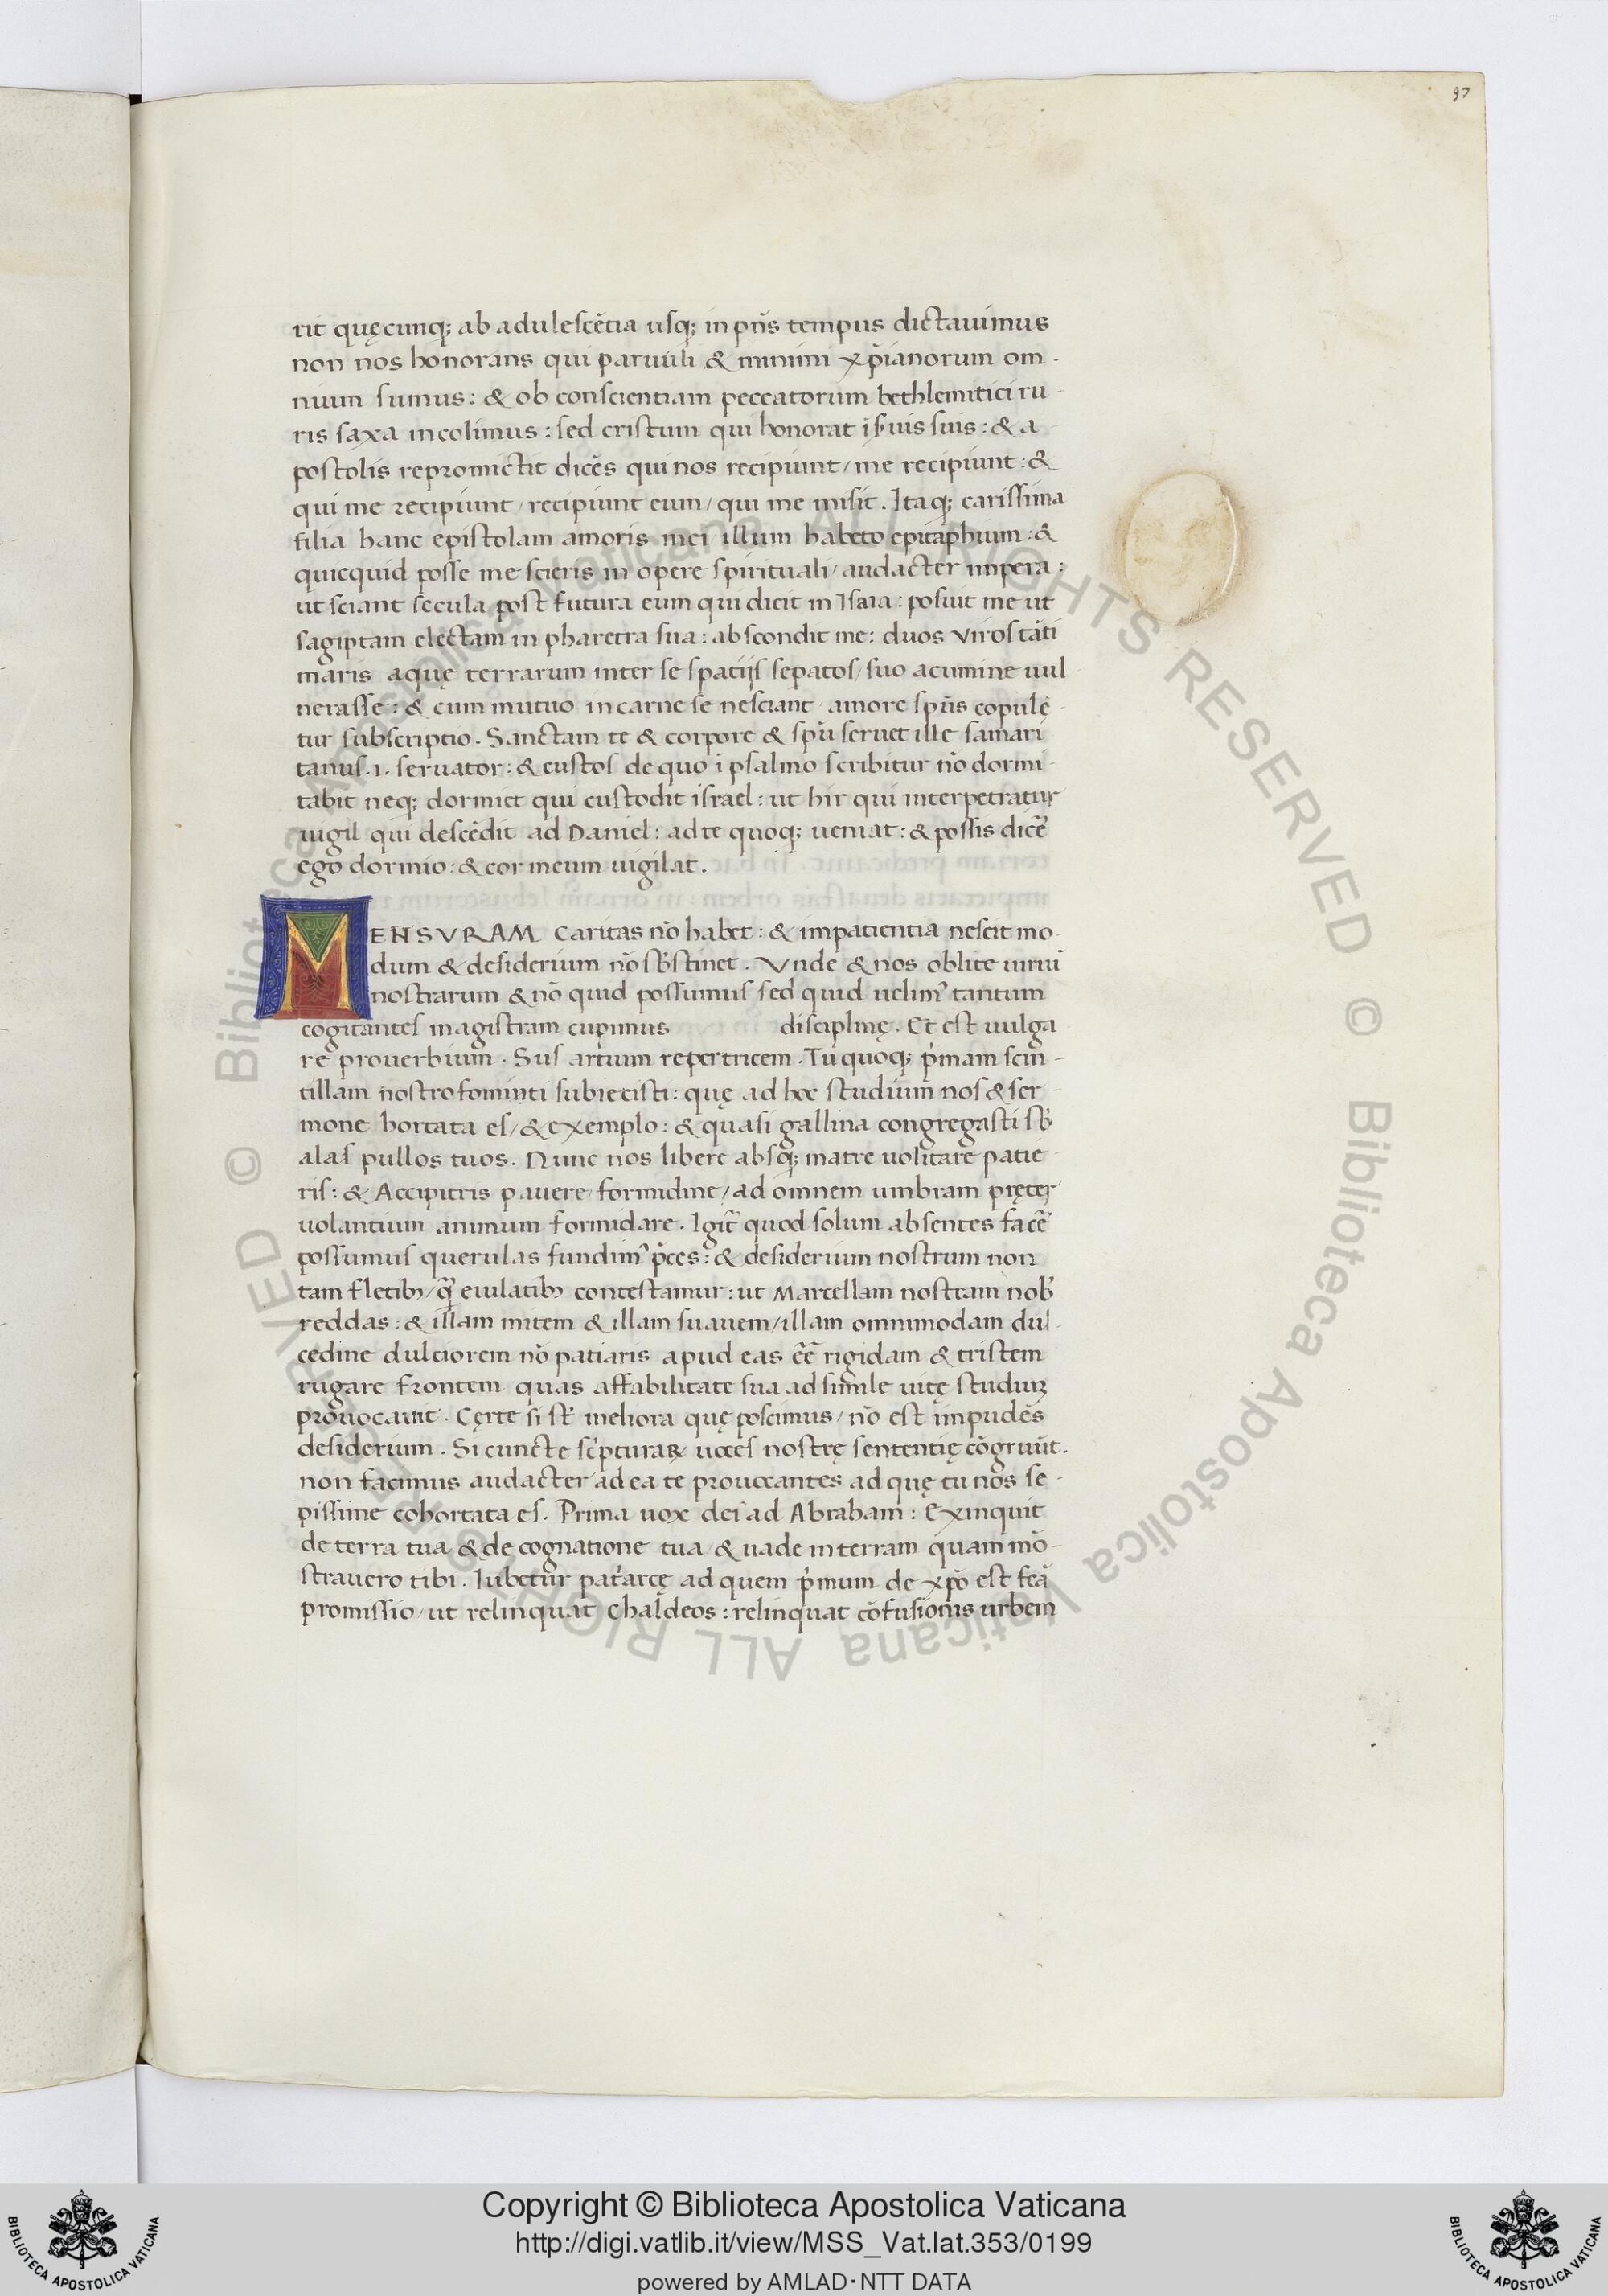 97
rit quęcunq; ab adulescẽtia usq; in pñs tempus dictauimus
non nos honorans qui paruuli & minimi xp̃ianorum om-
nium sumus: & ob conscientiam peccatorum bethlemitici ru-
ris saxa incolimus: sed cristum qui honorat ĩ suis: & a
postolis repromictit dicẽs qui nos recipiunt/ me recipiunt: &
qui me recipiunt/ recipiunt eum/ qui me misit. Itaq; carissima
filia hanc epistolam amoris mei illum habeto epitaphium: &
quicquid posse me scieris in opere spirituali/ audacter impera:
ut sciant secula post futura eum qui dicit in Isaia: posuit me ut
sagiptam electam in pharetra sua: abscondit me: duos viros tãti
maris aquę terrarum inter se spatijs sepatos/ suo acumine uul
nerasse: & cum mutuo in carne se nesciant/ amore spũs copulẽ-
tur subscriptio. Sanctam te & corpore & spũ seruet ille samari
tanus .i. seruator: & custos de quo ĩ psalmo scribitur nõ dormi-
tabit neq; dormiet qui custodit israel: ut hir qui interpetratur
uigil qui descẽdit ad Daniel: ad te quoq; ueniat: & possis dicẽ
ego dormio: & cor meum uigilat.
MENSVRAM Caritas nõ habet: & impatientia nescit mo-
dum & desiderium nõ sb̃stinet. Vnde & nos oblite uiriũ
nostrarum & nõ quid possumus sed quid uelim' tantum
cogitantes magistram cupimus disciplinę. Et est uulga
re prouerbium. Sus artium repertricem. Tu quoq; p̃mam scin-
tillam nostro fominti subiecisti: quę ad hoc studium nos & ser-
mone hortata es/ & exemplo: & quasi gallina congregasti sb̃
alas pullos tuos. Nunc nos libere absq; matre uolitare patie
ris: & Accipitris pauere formidine/ ad omnem umbram pręter
uolantium animum formidare. Igit̃ quod solum absentes facẽ
possumus querulas fundim' p̃ces: & desiderium nostrum non
tam fletib;/ q̃ eiulatib; contestamur: ut Marcellam nostram nob̃
reddas: & illam mitem & illam suauem/ illam omnimodam dul-
cedine dulciorem nõ patiaris apud eas eẽ rigidam & tristem
rugare frontem quas affabilitate sua ad simile uitę studiuz
prouocauit. Cęrte si st̃ meliora quę poscimus/ nõ est impudẽs
desiderium. Si cuncte sc̃pturaꝝ uoces nostrę sententię cõgruũt.
non facimus audacter ad ea te prouocantes ad quę tu nos se-
pissime cohortata es. Prima uox dei ad Abraham: Exi inquit
de terra tua & de cognatione tua & uade in terram quam mõ-
strauero tibi. Iubetur pat̃arcę ad quem p̃mum de xp̃o est fcã
promissio/ ut relinquat Chaldeos: relinquat cõfusionis urbem
Copyright © Biblioteca Apostolica Vaticana
http://digi.vatlib.it/view/MSS_Vat.lat.353/0199
powered by AMLAD·NTT DATA
BIBLIOTECA APOSTOLICA VATICANA
BIBLIOTECA APOSTOLICA VATICANA
© Biblioteca Apostolica Vaticana ALL RIGHTS RESERVED
© Biblioteca Apostolica Vaticana ALL RIGHTS RESERVED